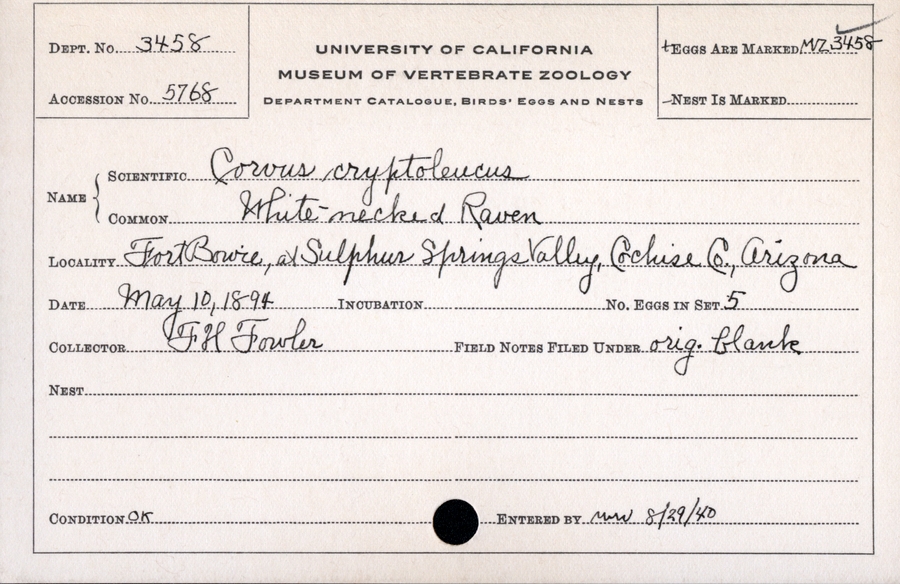 DEPT. No. 3458
ACCESSION No. 5768
UNIVERSITY OF CALIFORNIA
MUSEUM OF VERTEBRATE ZOOLOGY
DEPARTMENT CATALOGUE, BIRDS' EGGS AND NESTS
EGGS ARE MARKED MVZ 3458
NEST IS MARKED
NAME
SCIENTIFIC Corvus cryptoleucus
COMMON White-necked Raven
LOCALITY Fort Bowie, at Sulphur Springs Valley, Cochise Co., Arizona
DATE May 10, 1894 INCUBATION NO. EGGS IN SET 5
COLLECTOR F H Fowler FIELD NOTES FILED UNDER orig. blank
NEST
CONDITION OK ENTERED BY 8/29/40